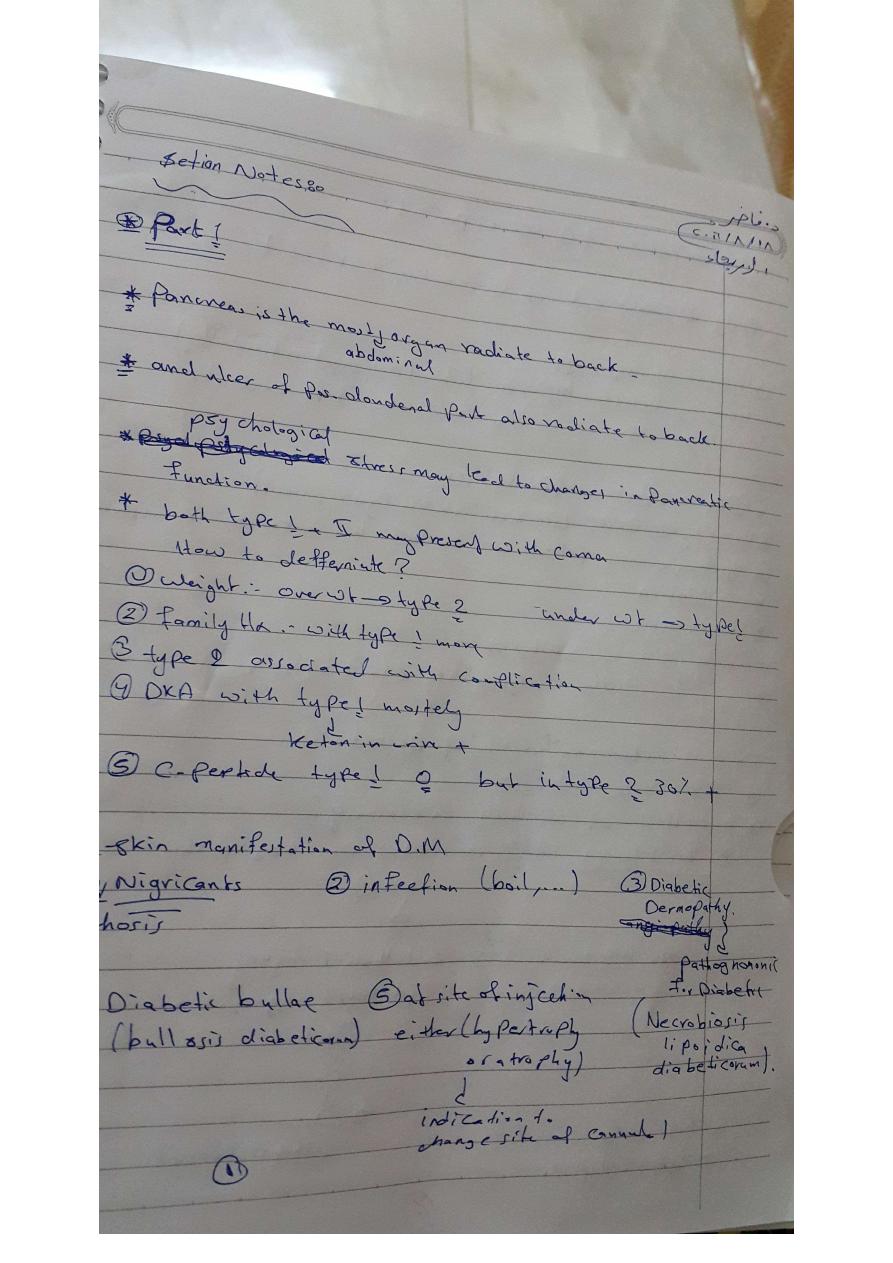 Setion Notes
د. فاخر
* Part 1
* Pancreas is the most organ radiate to back.
abdominal
* and ulcer of pos. doudenal part also radiate to back.
psychological
* stress may lead to changes in Pancreatic
function.
* both type 1 + II may present with coma
How to defferniate?
① weight :- over wt → type 2 under wt → type 1
② family Hx :- with type 1 more
③ type 2 associated with complication
④ DKA with type 1 mostely
↓
Keton in urine +
⑤ C-peptide type 1 0 but in type 2 30% +
skin manifestation of D.M
Nigricants ② infection (boil,...) ③ Diabetic
hosis Dermopathy.
Pathognomonic
for Diabetit
Diabetic bullae ⑤ at site of injection (Necrobiosis
(bullosis diabeticorum) either (hypertrophy lipoidica
or atrophy) diabeticorum).
↓
indication to
change site of cannula
①